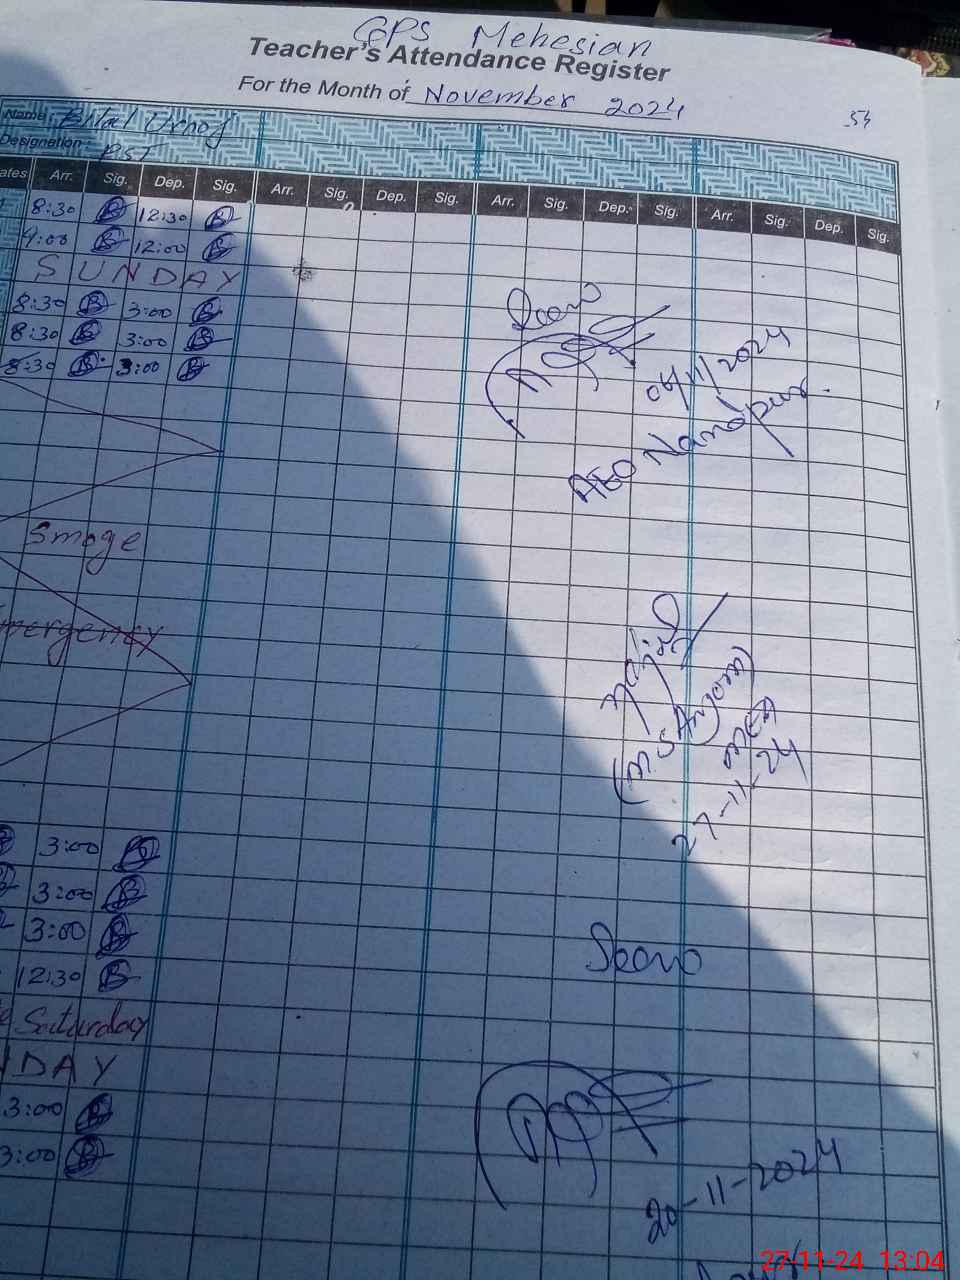 GPS Mehesian
Teacher's Attendance Register
For the Month of November 2024
54
Name: Bilal
Designation: PST
ates Arr. Sig. Dep. Sig. Arr. Sig. Dep. Sig. Arr. Sig. Dep. Sig. Arr. Sig. Dep. Sig.
8:30 12:30
9:00 12:00
SUNDAY
8:30 3:00
8:30 3:00
8:30 3:00
Seen
06/11/2024
AEO Nandpur.
Smoge
mergency
(MS Anjom)
MEA
27-11-24
3:00
3:00
3:00
12:30
Seen
Saturday
NDAY
3:00
3:00
20-11-2024
27-11-24 13:04